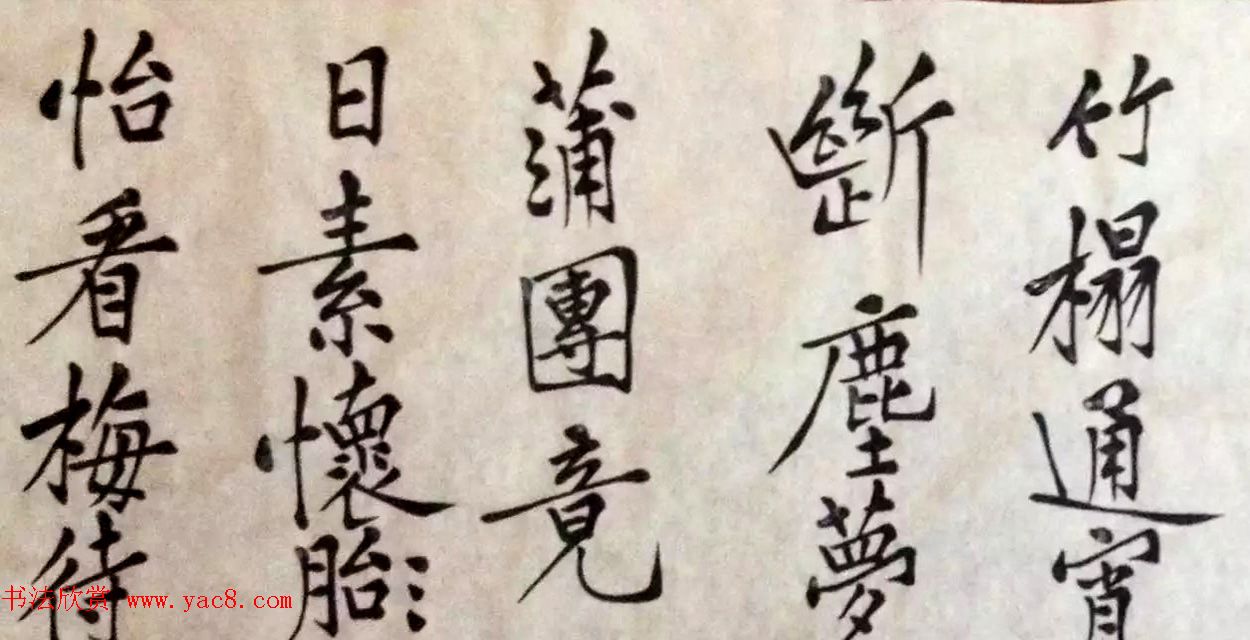 竹榻通宵
斷塵夢
蒲團竟
日素懷胎
怡看梅待
书法欣赏 www.yac8.com